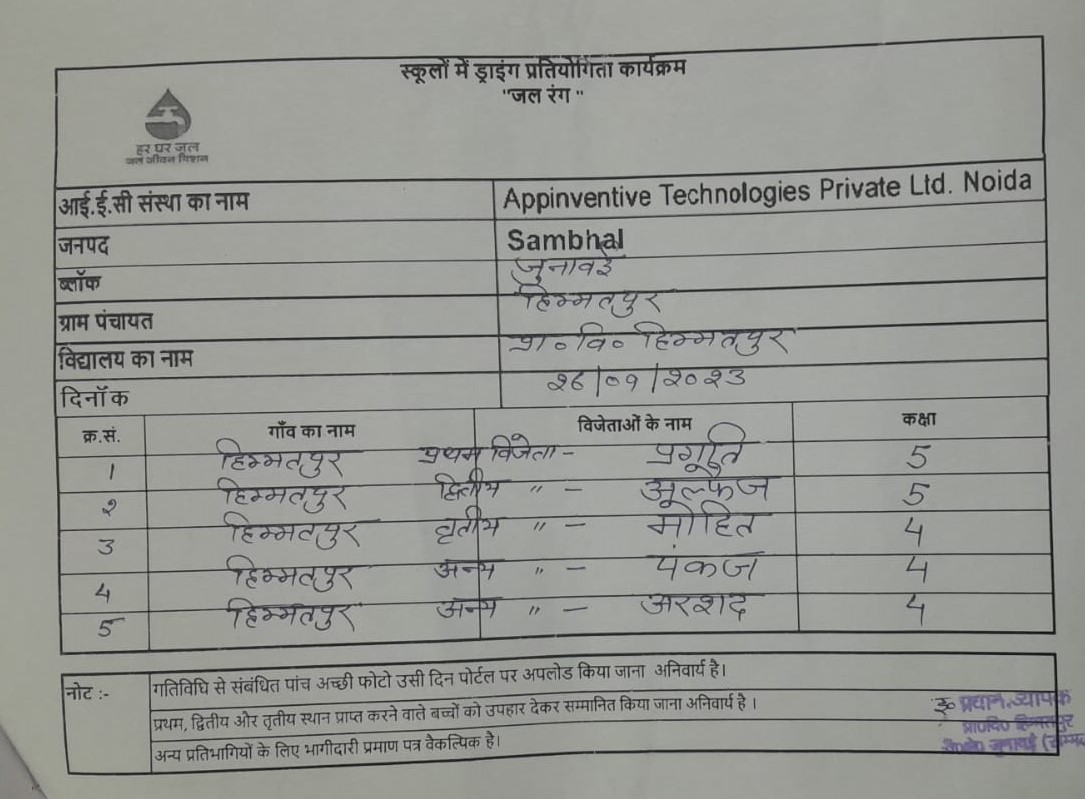 स्कूलों में ड्राइंग प्रतियोगिता कार्यक्रम
"जल रंग "
हर घर जल
जल जीवन मिशन
आई.ई.सी संस्था का नाम Appinventive Technologies Private Ltd. Noida
जनपद Sambhal
ब्लॉक जुनावई
ग्राम पंचायत हिम्मतपुर
विद्यालय का नाम प्रा० वि० हिम्मतपुर
दिनॉक २६/०१/२०२3
क्र.सं. गाँव का नाम विजेताओं के नाम कक्षा
1 हिम्मतपुर प्रथम विजेता - प्रगति 5
२ हिम्मतपुर द्वितीय " - 5
3 हिम्मतपुर तृतीय " - मोहित 4
4 हिम्मतपुर अन्य " - पंकज 4
5 हिम्मतपुर अन्य " - अरशद 4
नोट :- गतिविधि से संबंधित पांच अच्छी फोटो उसी दिन पोर्टल पर अपलोड किया जाना अनिवार्य है।
प्रथम, द्वितीय और तृतीय स्थान प्राप्त करने वाले बच्चों को उपहार देकर सम्मानित किया जाना अनिवार्य है ।
अन्य प्रतिभागियों के लिए भागीदारी प्रमाण पत्र वैकल्पिक है।
इ० प्रधानाध्यापक
प्रा०वि० हिम्मतपुर
जुनावई